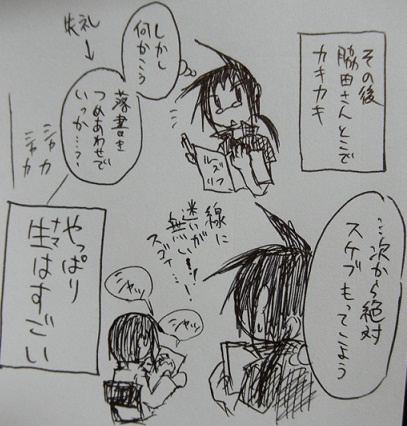 その後
脇田さんとこで
カキカキ
しかし
何かこう
失礼
落書き
つめあわせで
いっか…?
シャカ
シャカ
…次から絶対
スケブもってこよう
線に
迷いが
無い!!
スゴイ…!
シャッ
シャッ
やっぱり
生はすごい
ナマ